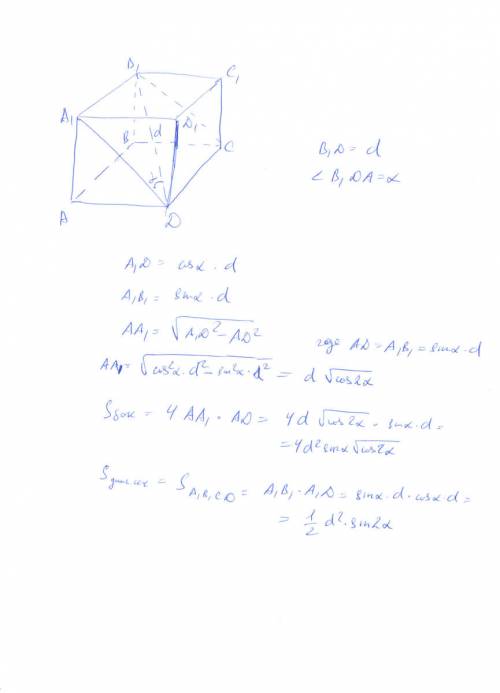 B₁
C₁
A₁
d
D₁
B
C
α
A
D
B₁D = d
∠ B₁DA = α
A₁D = cosα · d
A₁B₁ = sinα · d
AA₁ = √(A₁D² − AD²)
где AD = A₁B₁ = sinα · d
AA₁ = √(cos²α · d² − sin²α · d²) = d √cos2α
Sбок = 4 AA₁ · AD = 4d √cos2α · sinα · d =
= 4d² sinα √cos2α
S = S A₁B₁CD = A₁B₁ · A₁D = sinα · d · cosα · d =
= 1/2 d² · sin2α